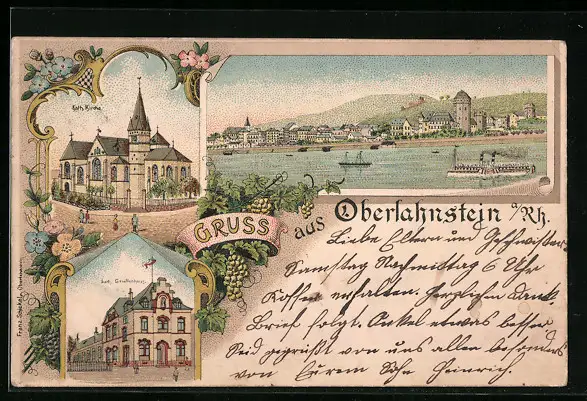 Kath. Kirche
GRUSS
aus Oberlahnstein a/Rh.
Liebe Eltern und Geschwister
Samstag Nachmittag 6 Uhr
Koffer erhalten. Herzlichen Dank.
Brief folgt. Onkel etwas besser
Seid gegrüßt von uns allen besonders
von Eurem Sohn Heinrich.